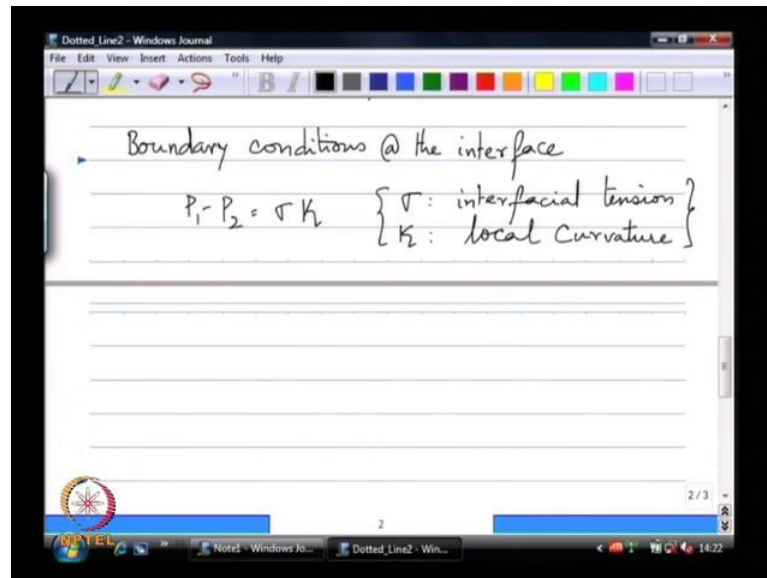 Dotted_Line2 - Windows Journal
File Edit View Insert Actions Tools Help
B I
Boundary conditions @ the interface
P₁-P₂ = σ K { σ : interfacial tension }
{ K : local Curvature }
2/3
2
NPTEL
Note1 - Windows Jo...
Dotted_Line2 - Win...
14:22